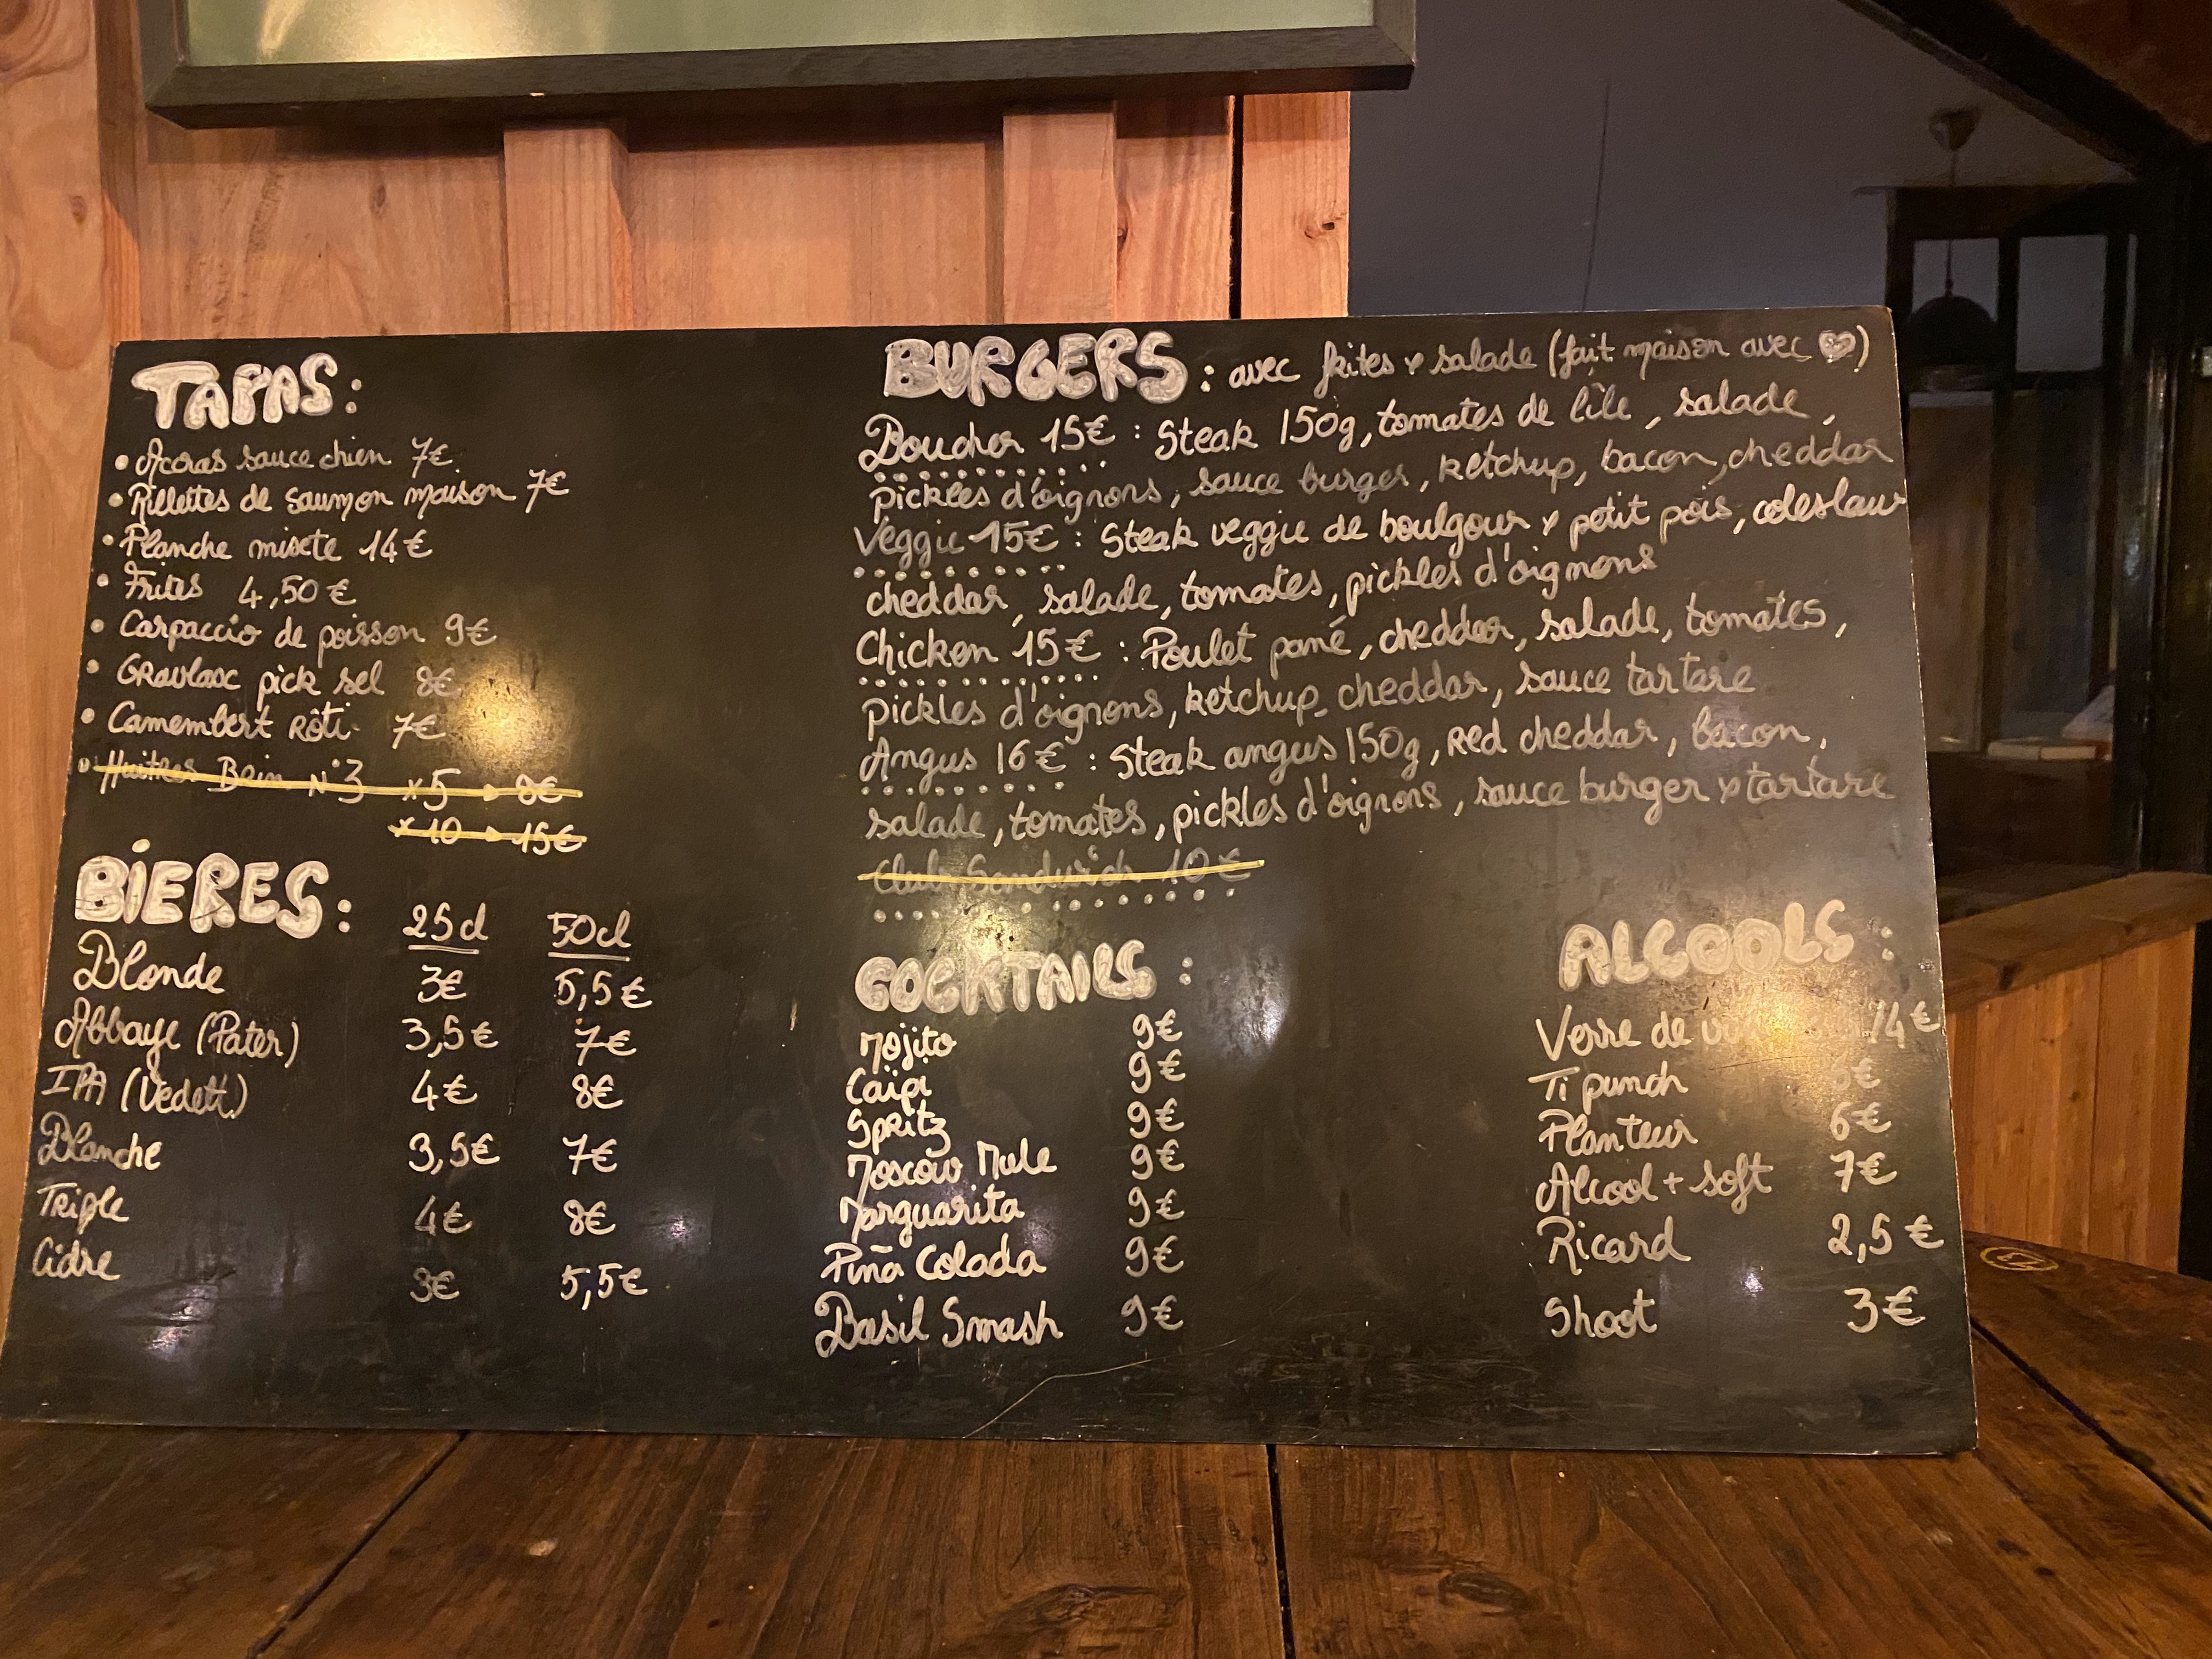 TAPAS :
• Acras sauce chien 7€
• Rillettes de saumon maison 7€
• Planche mixte 14€
• Frites 4,50€
• Carpaccio de poisson 9€
• Gravlax pick sel 8€
• Camembert Rôti 7€
• Huitres N°3 x5 → 8€
x10 → 15€
BIERES : 25cl 50cl
Blonde 3€ 5,5€
Abbaye (Pater) 3,5€ 7€
IPA (Vedett) 4€ 8€
Blanche 3,5€ 7€
Triple 4€ 8€
Cidre 3€ 5,5€
BURGERS : avec frites & salade (fait maison avec ♥)
Boucher 15€ : Steak 150g, tomates de l'île, salade,
pickles d'oignons, sauce burger, ketchup, bacon, cheddar
Veggie 15€ : Steak veggie de boulgour & petit pois, coleslaw
cheddar, salade, tomates, pickles d'oignons
Chicken 15€ : Poulet pané, cheddar, salade, tomates,
pickles d'oignons, ketchup, cheddar, sauce tartare
Angus 16€ : Steak angus 150g, Red cheddar, bacon,
salade, tomates, pickles d'oignons, sauce burger & tartare
Club Sandwich 10€
COCKTAILS :
Mojito 9€
Caïpi 9€
Spritz 9€
Moscow Mule 9€
Marguarita 9€
Piña Colada 9€
Basil Smash 9€
ALCOOLS :
Verre de 4€
Ti punch
Planteur 6€
Alcool + soft 7€
Ricard 2,5€
Shoot 3€